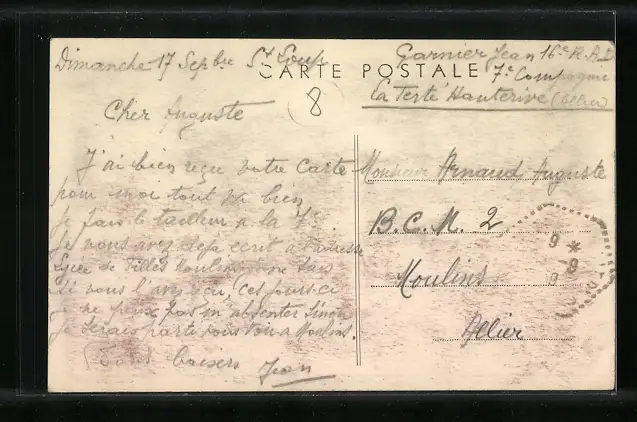 Dimanche 17 Sepbre St Loup
Garnier Jean 16e R.A.D
CARTE POSTALE
7e Compagnie
La Ferté Hauterive (Allier)
8
Cher Auguste
J'ai bien reçu votre Carte
pour moi tout va bien
Je fais le tailleur a la 7e
Je vous avez deja ecrit a l'adresse
Lycée de Filles Moulins
si vous l'avez reçu, ces jours-ci
je ne peux pas m'absenter sinon
je serais parti vous voir a Moulins.
Bons baisers Jean
Monsieur Arnaud Auguste
B.C.M. 2
Moulins
Allier